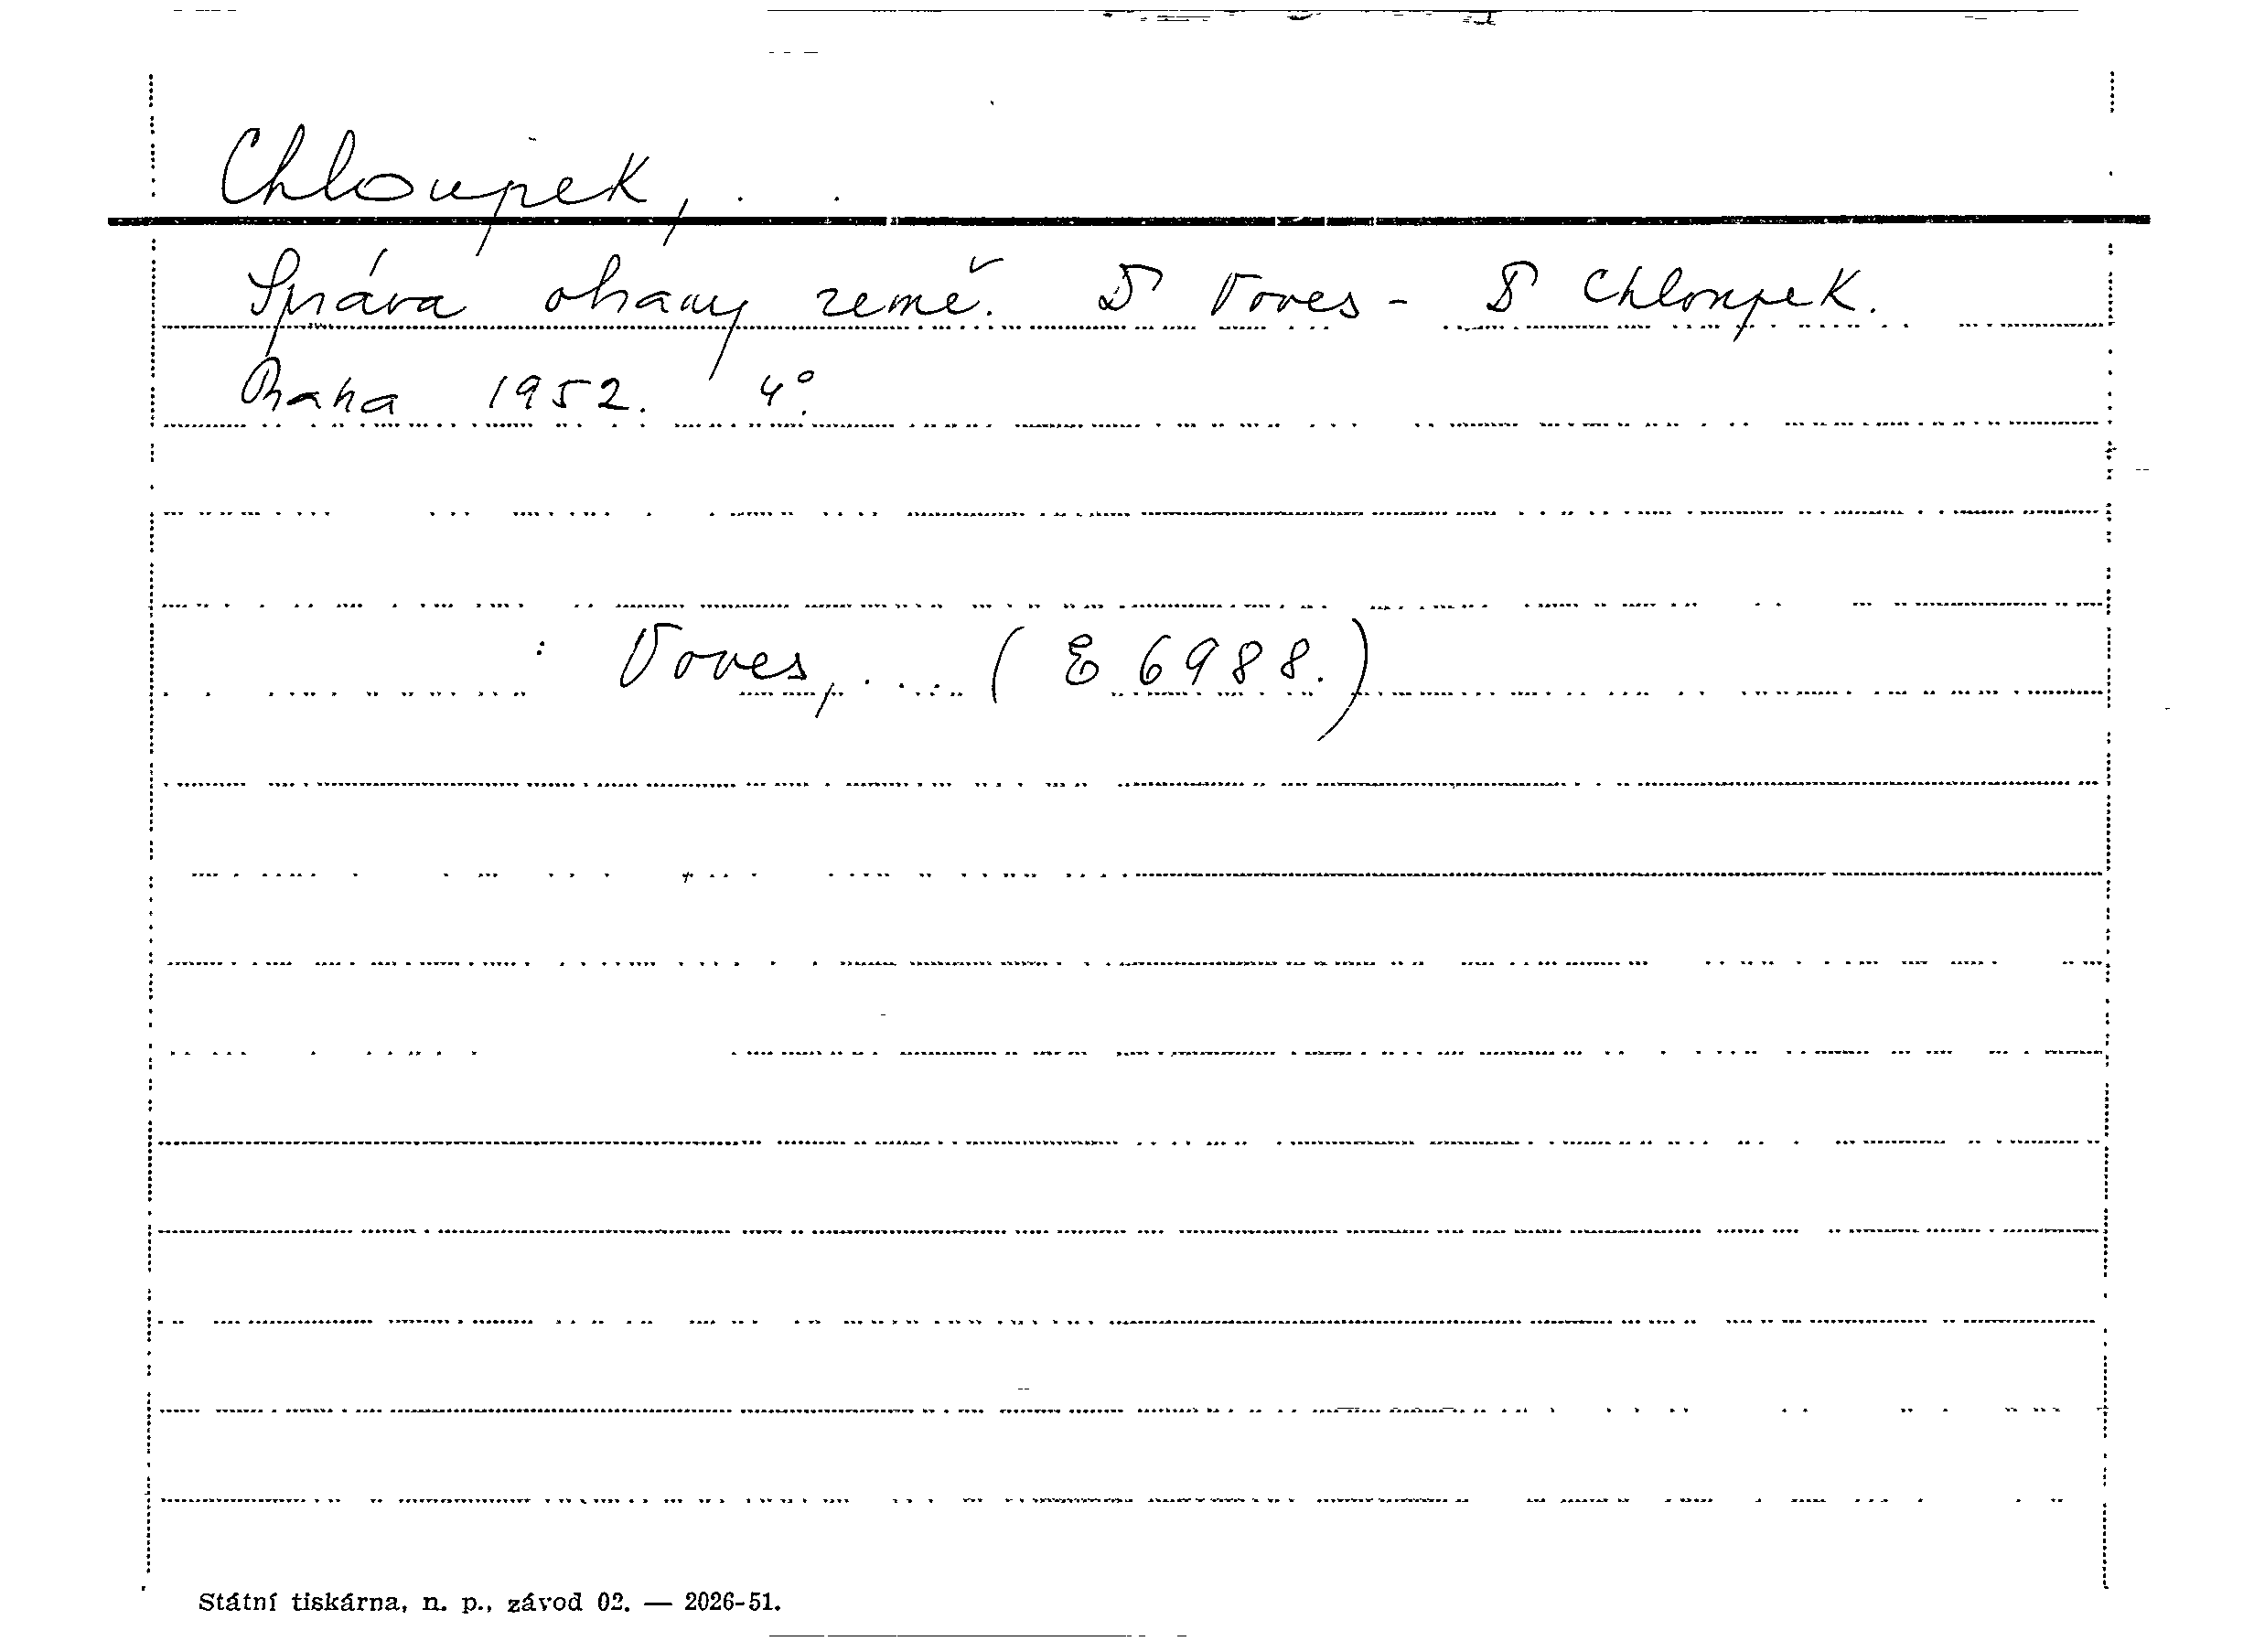 Chloupek, . .
Správa obrany země. Dr Voves - Dr Chloupek.
Praha 1952. 4°.
: Voves, . . . . ( E 6988.)
Státní tiskárna, n. p., závod 02. — 2026-51.